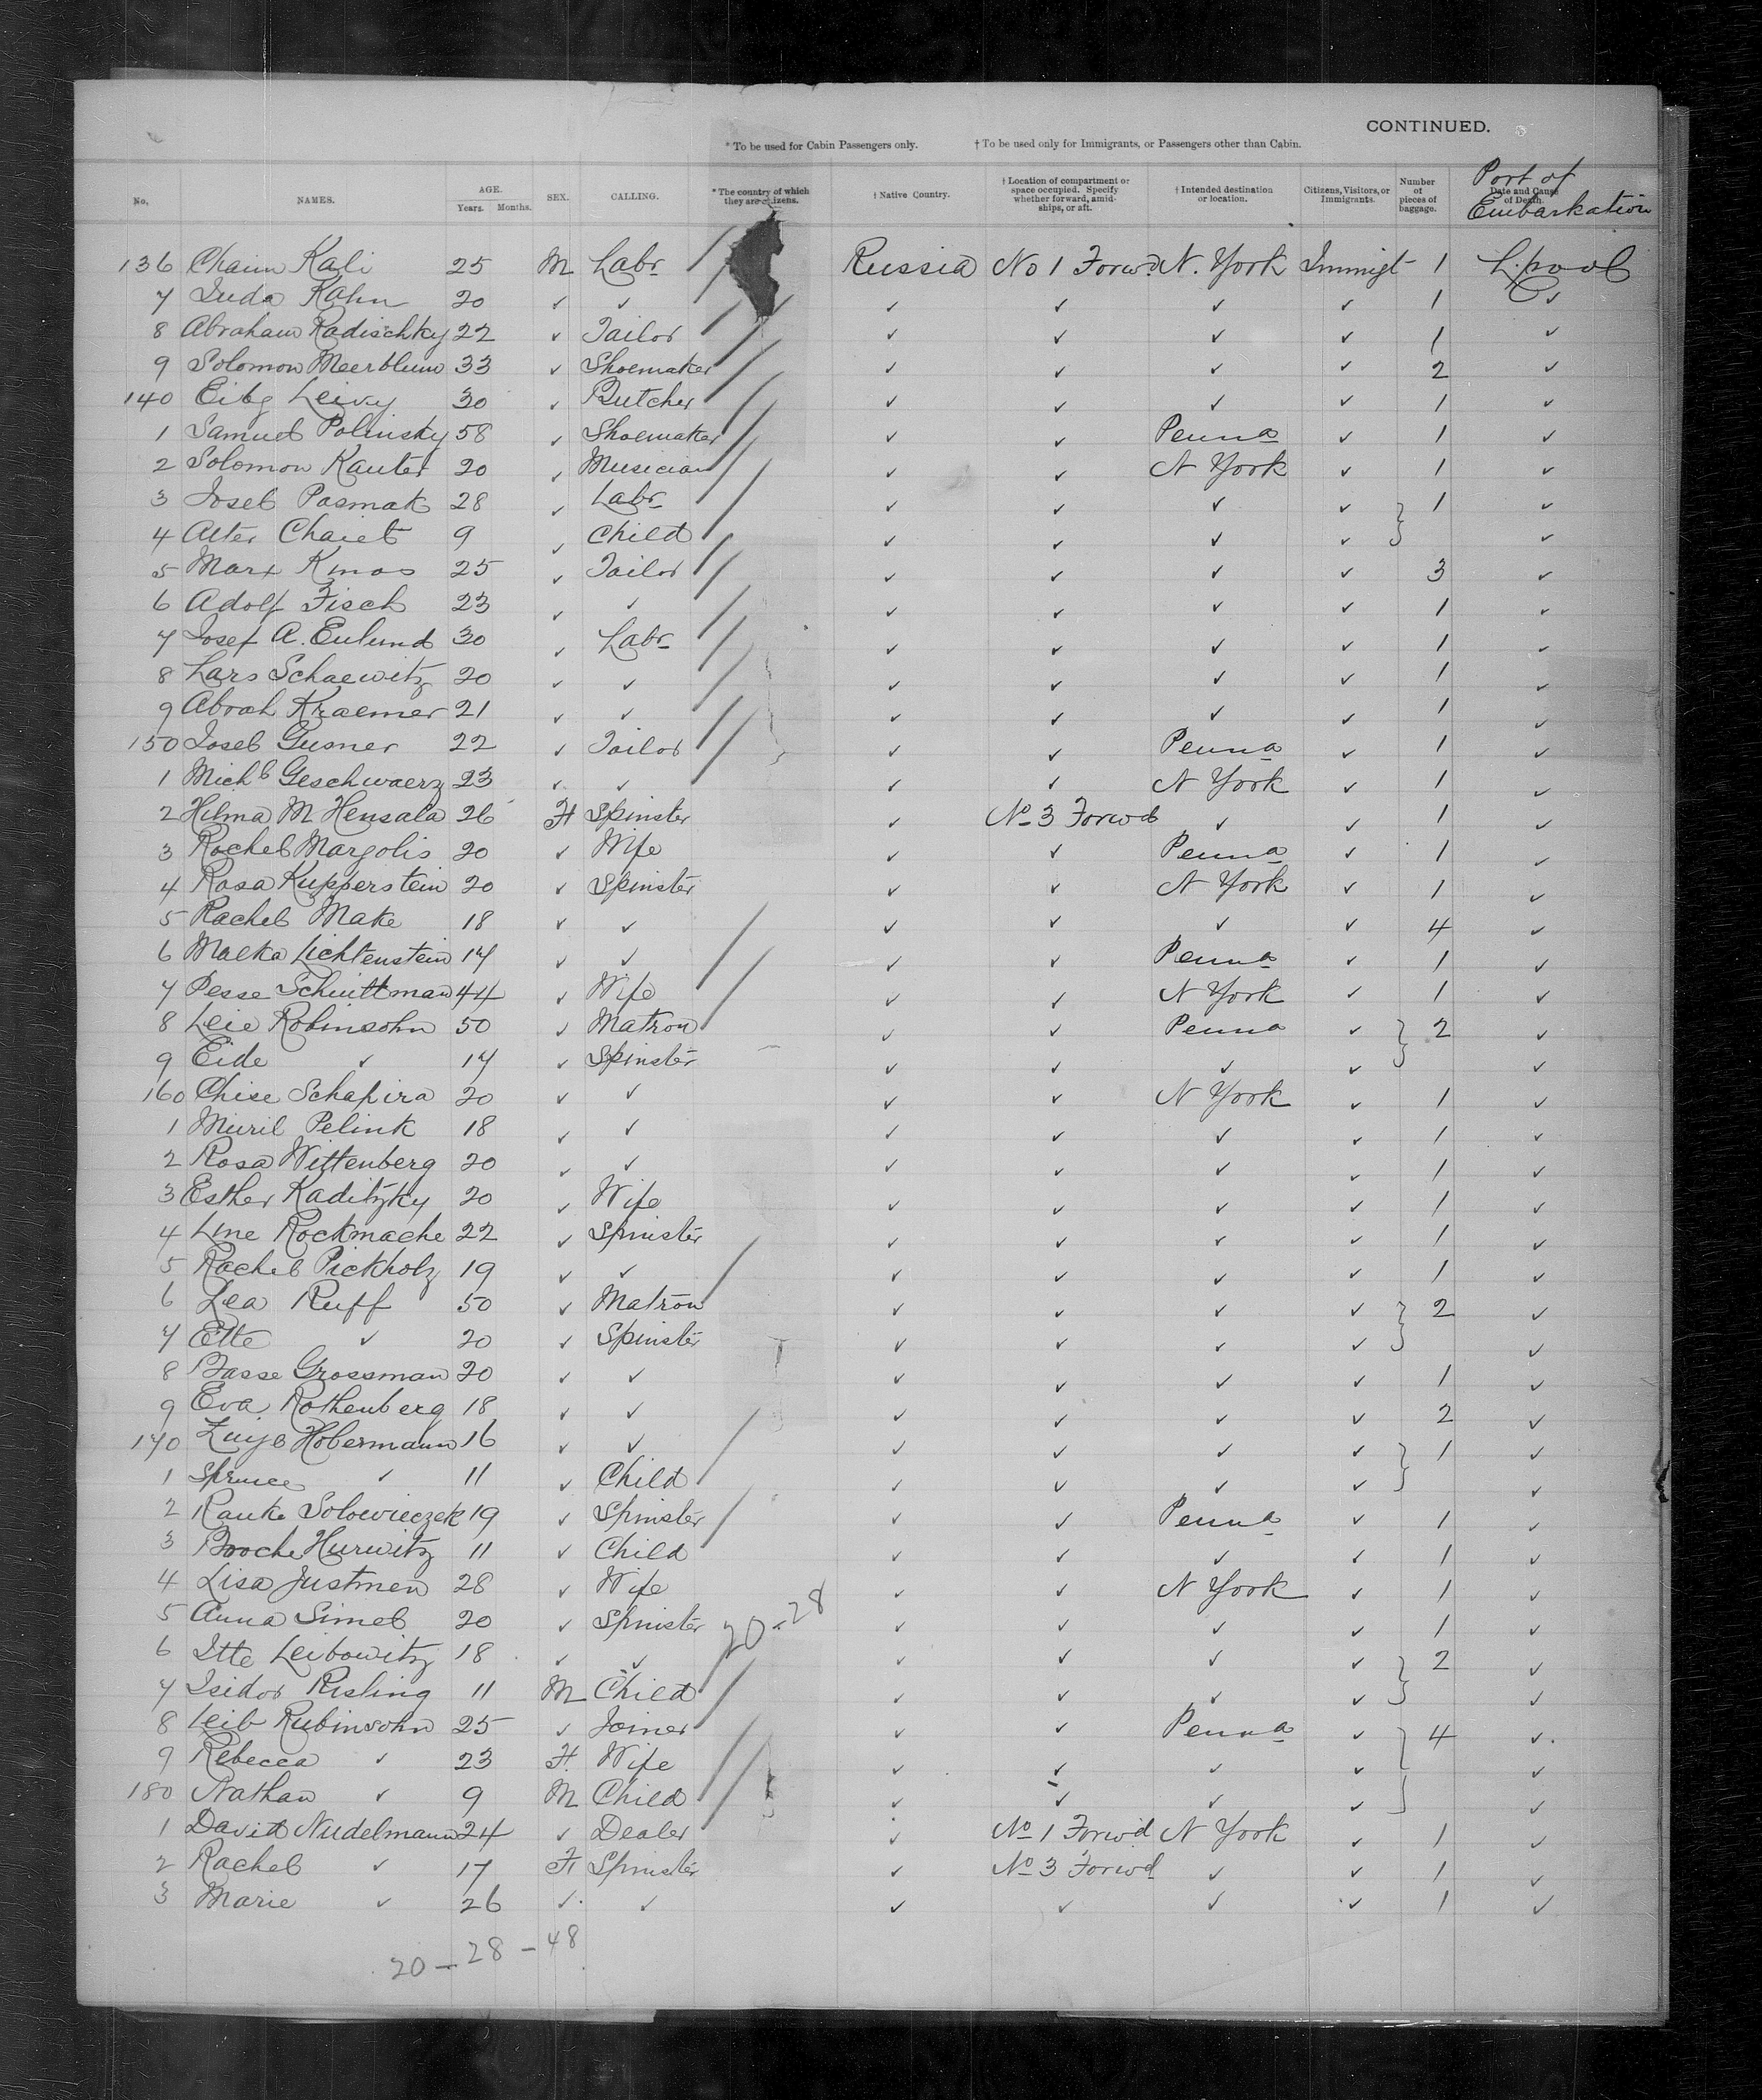 CONTINUED.
* To be used for Cabin Passengers only. † To be used only for Immigrants, or Passengers other than Cabin.
No. NAMES. AGE. Years. Months. SEX. CALLING. * The country of which they are citizens. † Native Country. † Location of compartment or space occupied. Specify whether forward, amidships, or aft. † Intended destination or location. Citizens, Visitors, or Immigrants. Number of pieces of baggage. Date and Cause of Death. Port of Embarkation
136 Chaim Kali 25 M Labr Russia No 1 Forwd N. York Immigt 1 L.pool
7 Juda Kahn 20 ✓ ✓ ✓ ✓ ✓ ✓ 1 ✓
8 Abraham Radischky 22 ✓ Tailor ✓ ✓ ✓ ✓ 1 ✓
9 Solomon Meerblum 33 ✓ Shoemaker ✓ ✓ ✓ ✓ 2 ✓
140 Eibg Leivy 30 ✓ Butcher ✓ ✓ ✓ ✓ 1 ✓
1 Samuel Polinsky 58 ✓ Shoemaker ✓ ✓ Penna ✓ 1 ✓
2 Solomon Kanter 20 ✓ Musician ✓ ✓ N York ✓ 1 ✓
3 Josel Pasmak 28 ✓ Labr ✓ ✓ ✓ ✓ 1 ✓
4 Alter Chaiet 9 ✓ Child ✓ ✓ ✓ ✓ ✓
5 Marx Kmos 25 ✓ Tailor ✓ ✓ ✓ ✓ 3 ✓
6 Adolf Fisch 23 ✓ ✓ ✓ ✓ ✓ ✓ 1 ✓
7 Josef A. Eulund 30 ✓ Labr ✓ ✓ ✓ ✓ 1 ✓
8 Lars Schaewitz 20 ✓ ✓ ✓ ✓ ✓ ✓ 1 ✓
9 Abrah Kraemer 21 ✓ ✓ ✓ ✓ ✓ ✓ 1 ✓
150 Josel Gusner 22 ✓ Tailor ✓ ✓ Penna ✓ 1 ✓
1 Michl Geschwaerz 23 ✓ ✓ ✓ ✓ N York ✓ 1 ✓
2 Hilma M Hensala 26 F Spinster ✓ No 3 Forwd ✓ ✓ 1 ✓
3 Rachel Margolis 20 ✓ Wife ✓ ✓ Penna ✓ 1 ✓
4 Rosa Kupperstein 20 ✓ Spinster ✓ ✓ N York ✓ 1 ✓
5 Rachel Make 18 ✓ ✓ ✓ ✓ ✓ ✓ 4 ✓
6 Malka Lichtenstein 17 ✓ ✓ ✓ ✓ Penna ✓ 1 ✓
7 Pesse Schuittman 44 ✓ Wife ✓ ✓ N York ✓ 1 ✓
8 Leie Robinsohn 50 ✓ Matron ✓ ✓ Penna ✓ 2 ✓
9 Eide ✓ 17 ✓ Spinster ✓ ✓ ✓ ✓ ✓
160 Chise Schapira 20 ✓ ✓ ✓ ✓ N York ✓ 1 ✓
1 Muril Pelink 18 ✓ ✓ ✓ ✓ ✓ ✓ 1 ✓
2 Rosa Wittenberg 20 ✓ ✓ ✓ ✓ ✓ ✓ 1 ✓
3 Esther Raditzky 20 ✓ Wife ✓ ✓ ✓ ✓ 1 ✓
4 Line Rockmache 22 ✓ Spinster ✓ ✓ ✓ ✓ 1 ✓
5 Rachel Pickholz 19 ✓ ✓ ✓ ✓ ✓ ✓ 1 ✓
6 Lea Ruff 50 ✓ Matron ✓ ✓ ✓ ✓ 2 ✓
7 Ette ✓ 20 ✓ Spinster ✓ ✓ ✓ ✓ ✓
8 Basse Grossman 20 ✓ ✓ ✓ ✓ ✓ ✓ 1 ✓
9 Eva Rothenberg 18 ✓ ✓ ✓ ✓ ✓ ✓ 2 ✓
170 Hobermann 16 ✓ ✓ ✓ ✓ ✓ ✓ 1 ✓
1 Sprince ✓ 11 ✓ Child ✓ ✓ ✓ ✓ ✓
2 Rauke Solowieczek 19 ✓ Spinster ✓ ✓ Penna ✓ 1 ✓
3 Broche Hurwitz 11 ✓ Child ✓ ✓ ✓ ✓ 1 ✓
4 Lisa Justmen 28 ✓ Wife ✓ ✓ N York ✓ 1 ✓
5 Anna Simel 20 ✓ Spinster 20-28 ✓ ✓ ✓ ✓ 1 ✓
6 Itte Leibowitz 18 ✓ ✓ ✓ ✓ ✓ ✓ 2 ✓
7 Isidor Risling 11 M Child ✓ ✓ ✓ ✓ ✓
8 Leib Rubinsohn 25 ✓ Joiner ✓ ✓ Penna ✓ 4 ✓
9 Rebecca ✓ 23 F. Wife ✓ ✓ ✓ ✓ ✓
180 Nathan ✓ 9 M Child ✓ ✓ ✓ ✓ ✓
1 David Nudelmann 24 ✓ Dealer ✓ No 1 Forwd N York ✓ 1 ✓
2 Rachel ✓ 17 F Spinster ✓ No 3 Forwd ✓ ✓ 1 ✓
3 Marie ✓ 26 ✓ ✓ ✓ ✓ ✓ ✓ 1 ✓
20 - 28 - 48